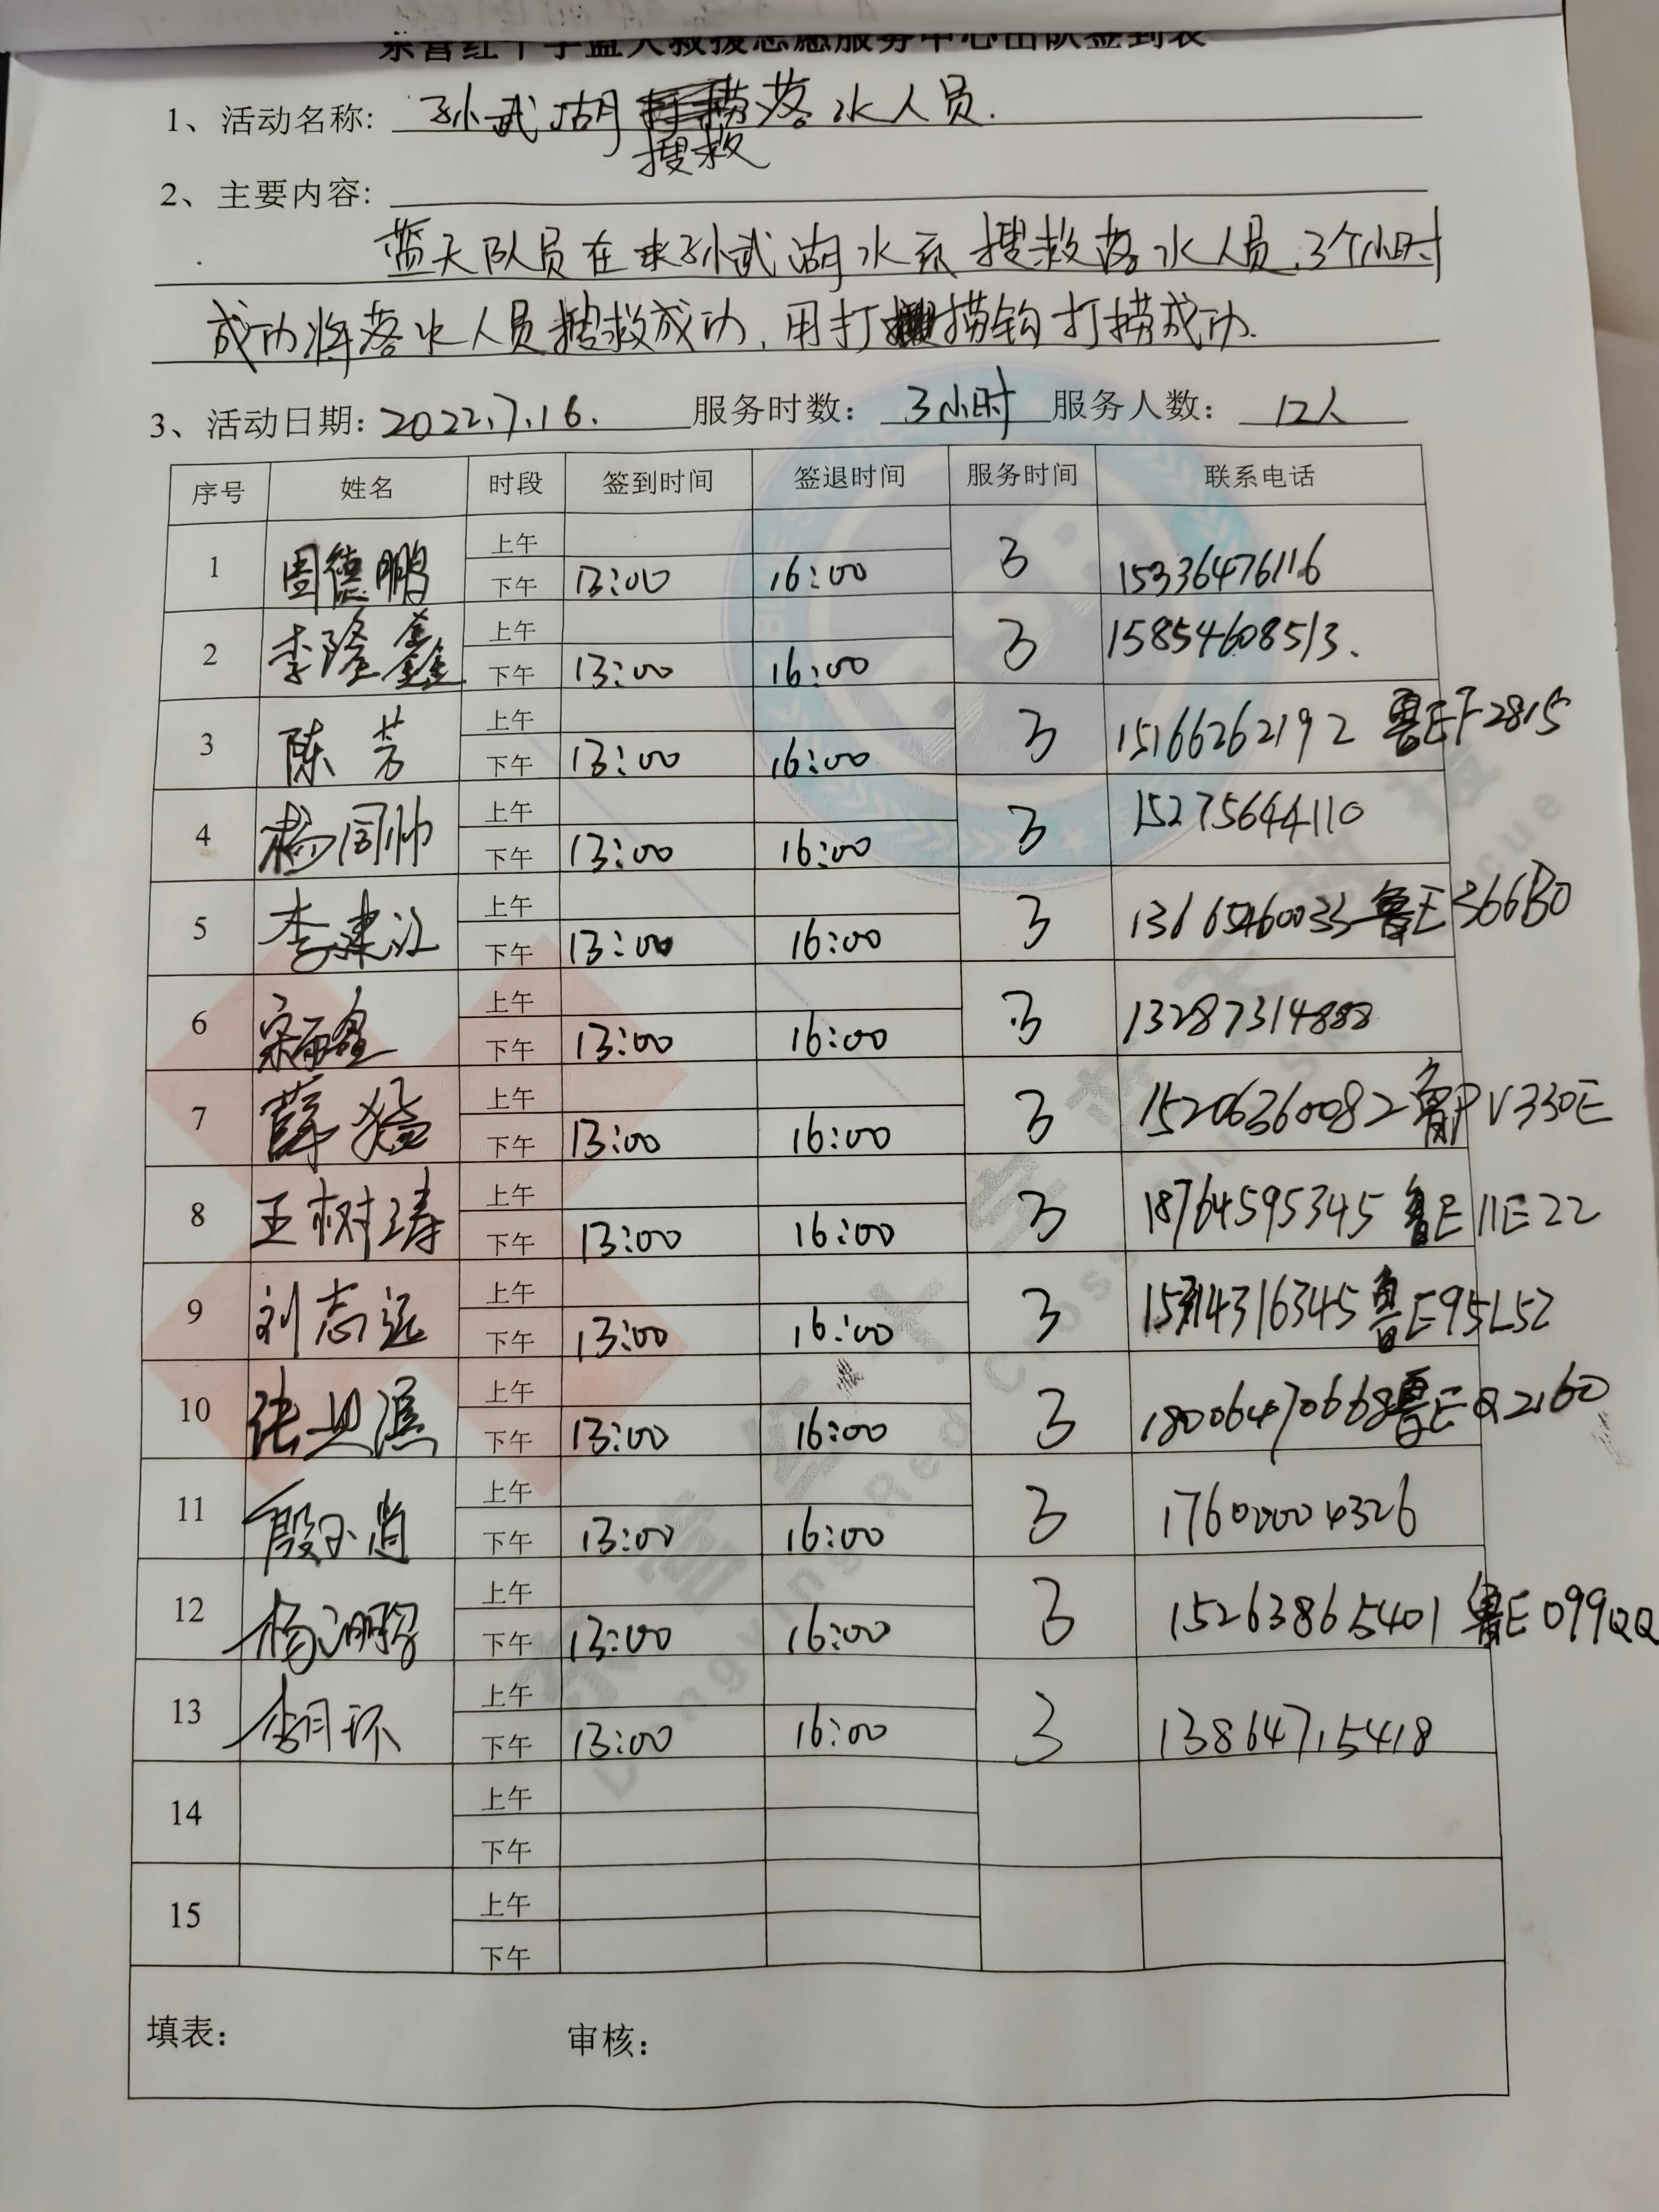 东营红十字蓝天救援志愿服务中心出队签到表
1、活动名称: 孙武湖落水人员.
搜救
2、主要内容:
蓝天队员在孙武湖水域搜救落水人员,3个小时
成功将落水人员搜救成功,用打捞钩打捞成功.
3、活动日期: 2022.7.16. 服务时数: 3小时 服务人数: 12人
序号 姓名 时段 签到时间 签退时间 服务时间 联系电话
上午
1 周德鹏 下午 13:00 16:00 3 15336476116
上午
2 李隆鑫 下午 13:00 16:00 3 15854608513.
上午
3 陈芳 下午 13:00 16:00 3 15166262192 鲁EF2815
上午
4 杨同帅 下午 13:00 16:00 3 15275644110
上午
5 李建江 下午 13:00 16:00 3 13665460033 鲁E366B0
上午
6 下午 13:00 16:00 3 13287314888
上午
7 薛猛 下午 13:00 16:00 3 15206360082 鲁PV330E
上午
8 王树涛 下午 13:00 16:00 3 18764595345 鲁E11E22
上午
9 刘志远 下午 13:00 16:00 3 鲁E95L52
上午
10 下午 13:00 16:00 3 18006470668 鲁EQ2160
上午
11 下午 13:00 16:00 3 17600004326
上午
12 下午 13:00 16:00 3 15263865401 鲁E099QQ
上午
13 下午 13:00 16:00 3 13864715418
上午
14 下午
上午
15 下午
填表: 审核:
东营红十字蓝天救援
Dongying Red Cross Blue Sky Rescue
BSR